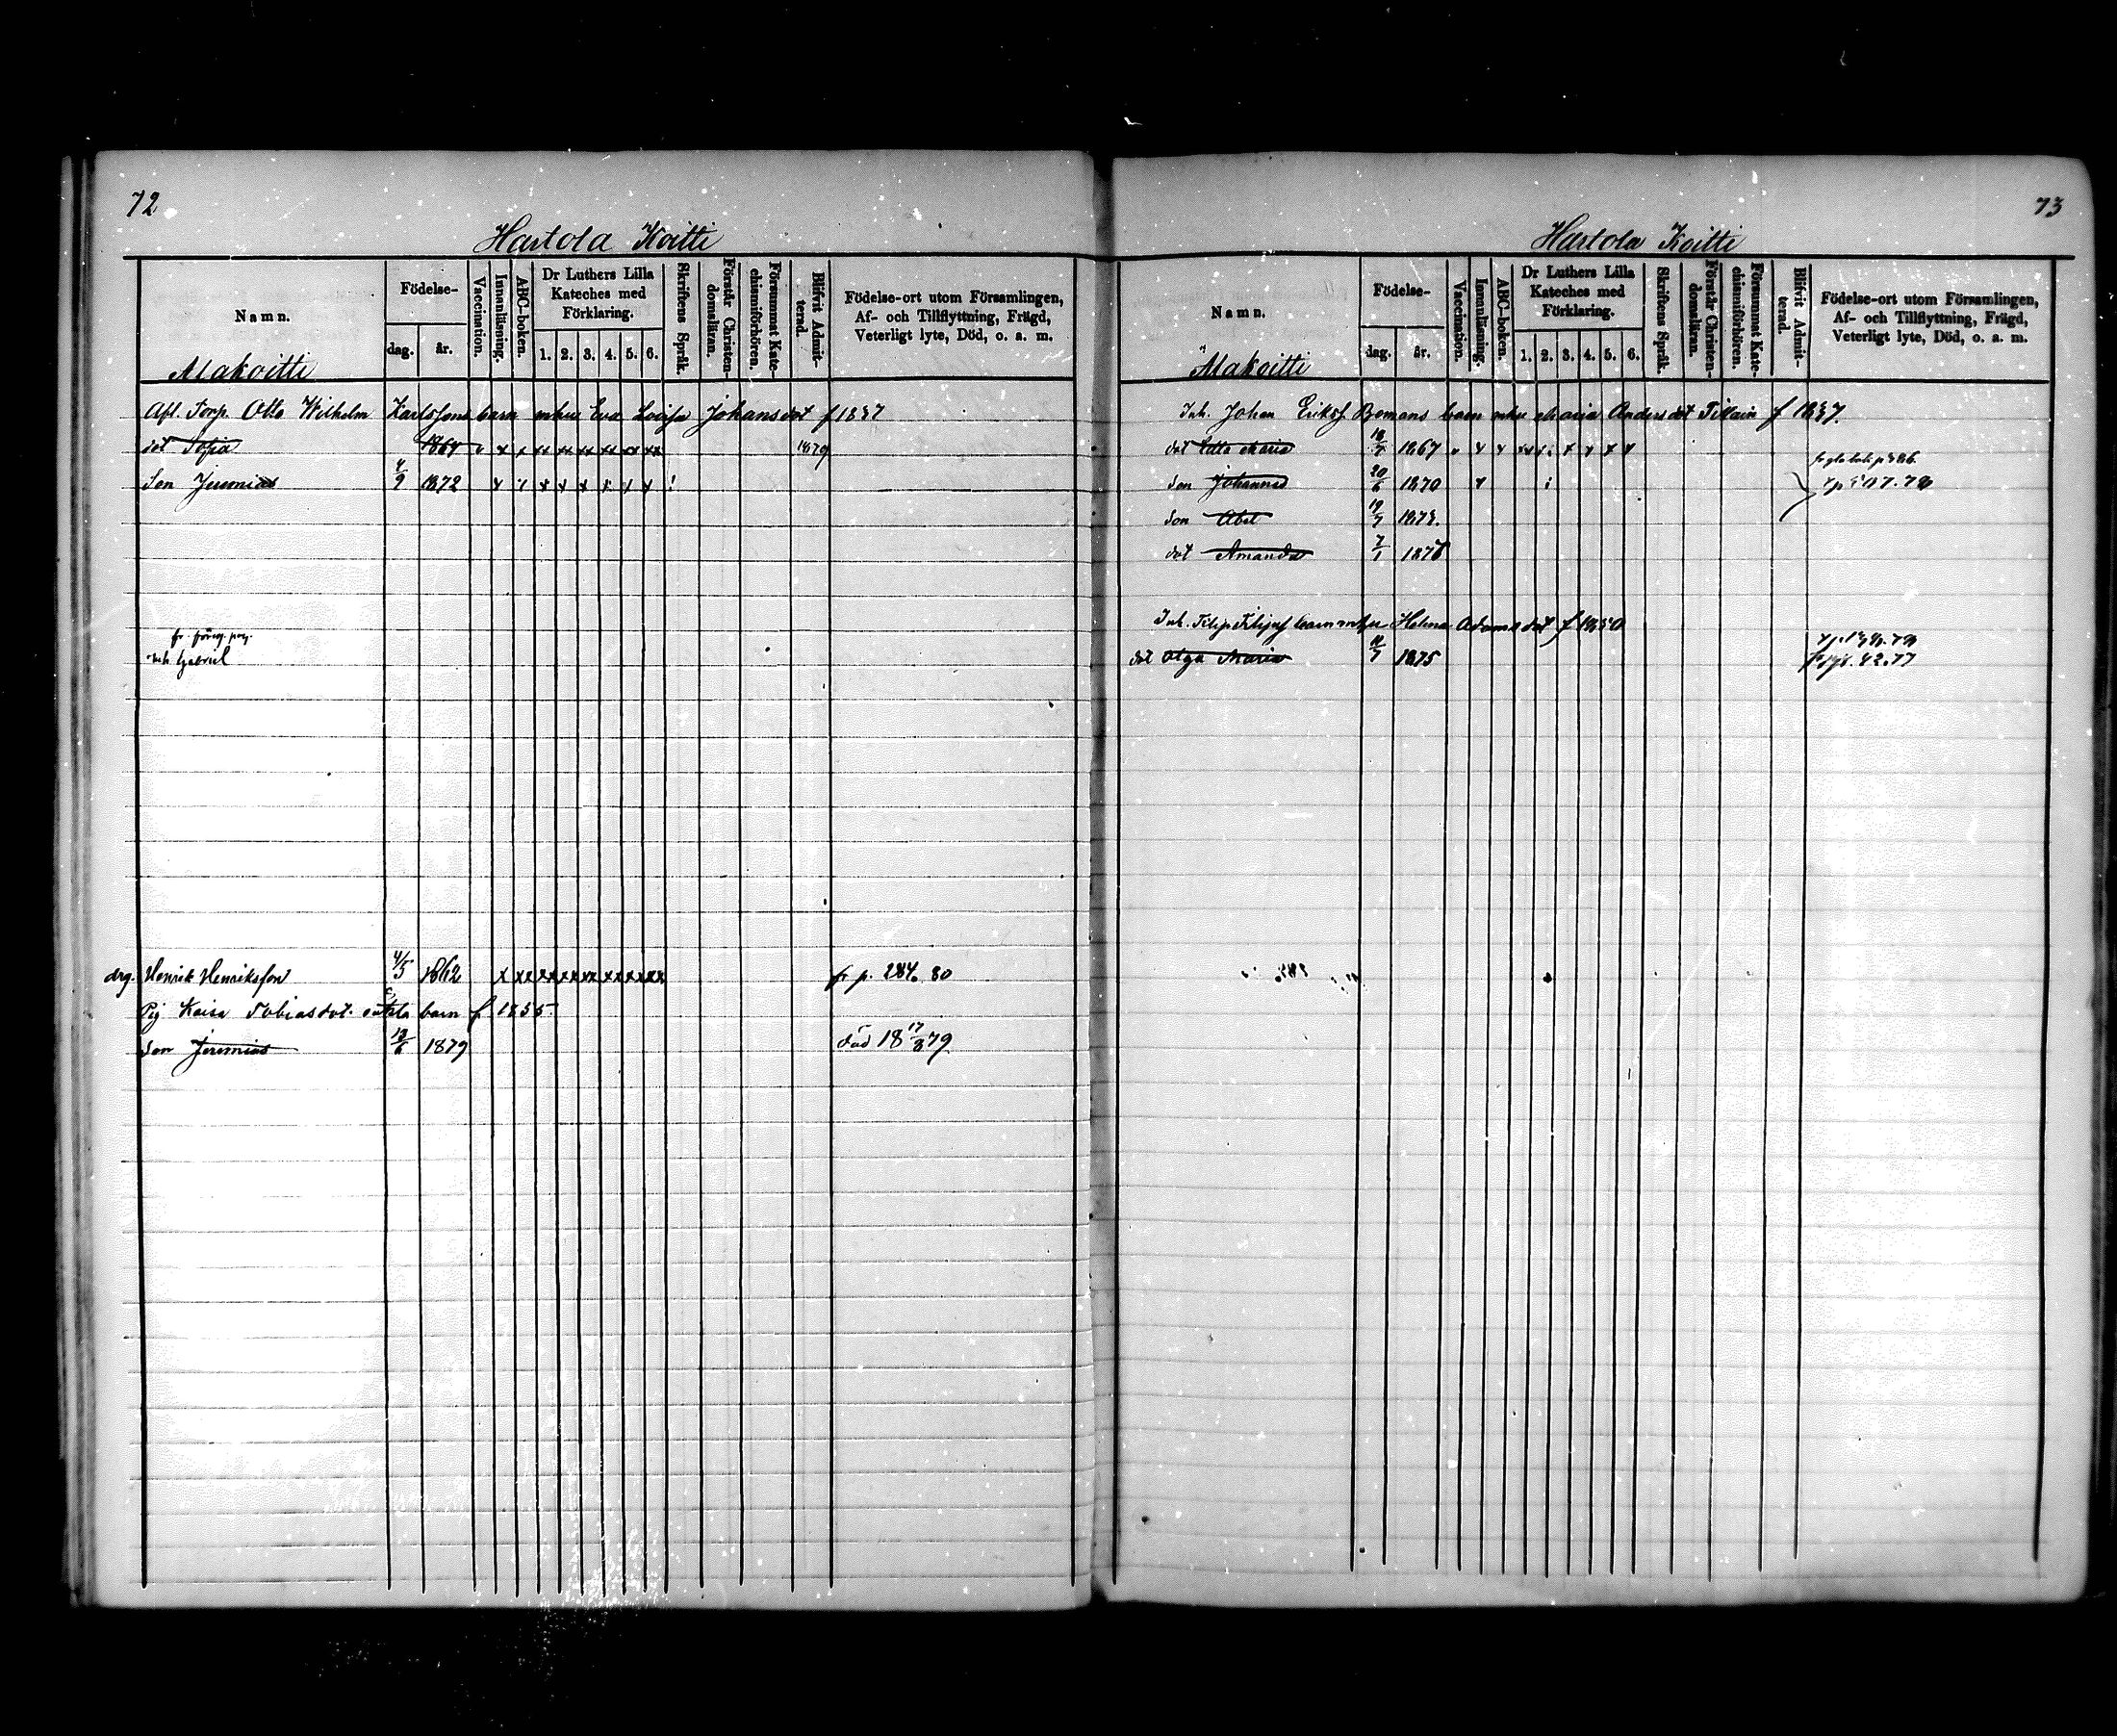 72
Hartola Koitti
Namn.
Födelse-
dag.
år.
Vaccination.
Innanläsning.
ABC-boken.
Dr Luthers Lilla
Kateches med
Förklaring.
1. 2. 3. 4. 5. 6.
Skriftens Språk.
Förstår Christen-
domsläran.
Försummat Kate-
chismiförhören.
Blifvit Admit-
terad.
Födelse-ort utom Församlingen,
Af- och Tillflyttning, Frägd,
Veterligt lyte, Död, o. a. m.
Makoitti
Afl. Torp. Otto Wilhelm Karlssons barn m hu Eva Lovisa Johansdot f 1837
dot Sofia 1864 v x x xx xx xx xx xx xx 1879
Son Jeremias 4/9 1872 x x x x x x x x !
fr. föreg. pag.
Gabriel
drg. Henrik Henriksson 4/5 1862 x xx xx xx xx xx xx xx fr p. 284. 80
Pig Kaisa Tobiasdot. oäkta barn f 1855
Son Jeremias 12/6 1879 död 18 17/8 79
73
Hartola Koitti
Namn.
Födelse-
dag.
år.
Vaccination.
Innanläsning.
ABC-boken.
Dr Luthers Lilla
Kateches med
Förklaring.
1. 2. 3. 4. 5. 6.
Skriftens Språk.
Förstår Christen-
domsläran.
Försummat Kate-
chismiförhören.
Blifvit Admit-
terad.
Födelse-ort utom Församlingen,
Af- och Tillflyttning, Frägd,
Veterligt lyte, Död, o. a. m.
Makoitti
Inh. Johan Eriks. Bomans barn m hu Maria Andersdot Tikain f 1837.
dot Edla Maria 18/7 1867 v x x xx x x x x x
Son Johannes 20/6 1870 x
Son Abel 19/7 1873.
dot Amanda 7/1 1876
Inh. Filip Filipss barn m hu Helena Adamsdot f 1850
dot Olga Maria 11/7 1875